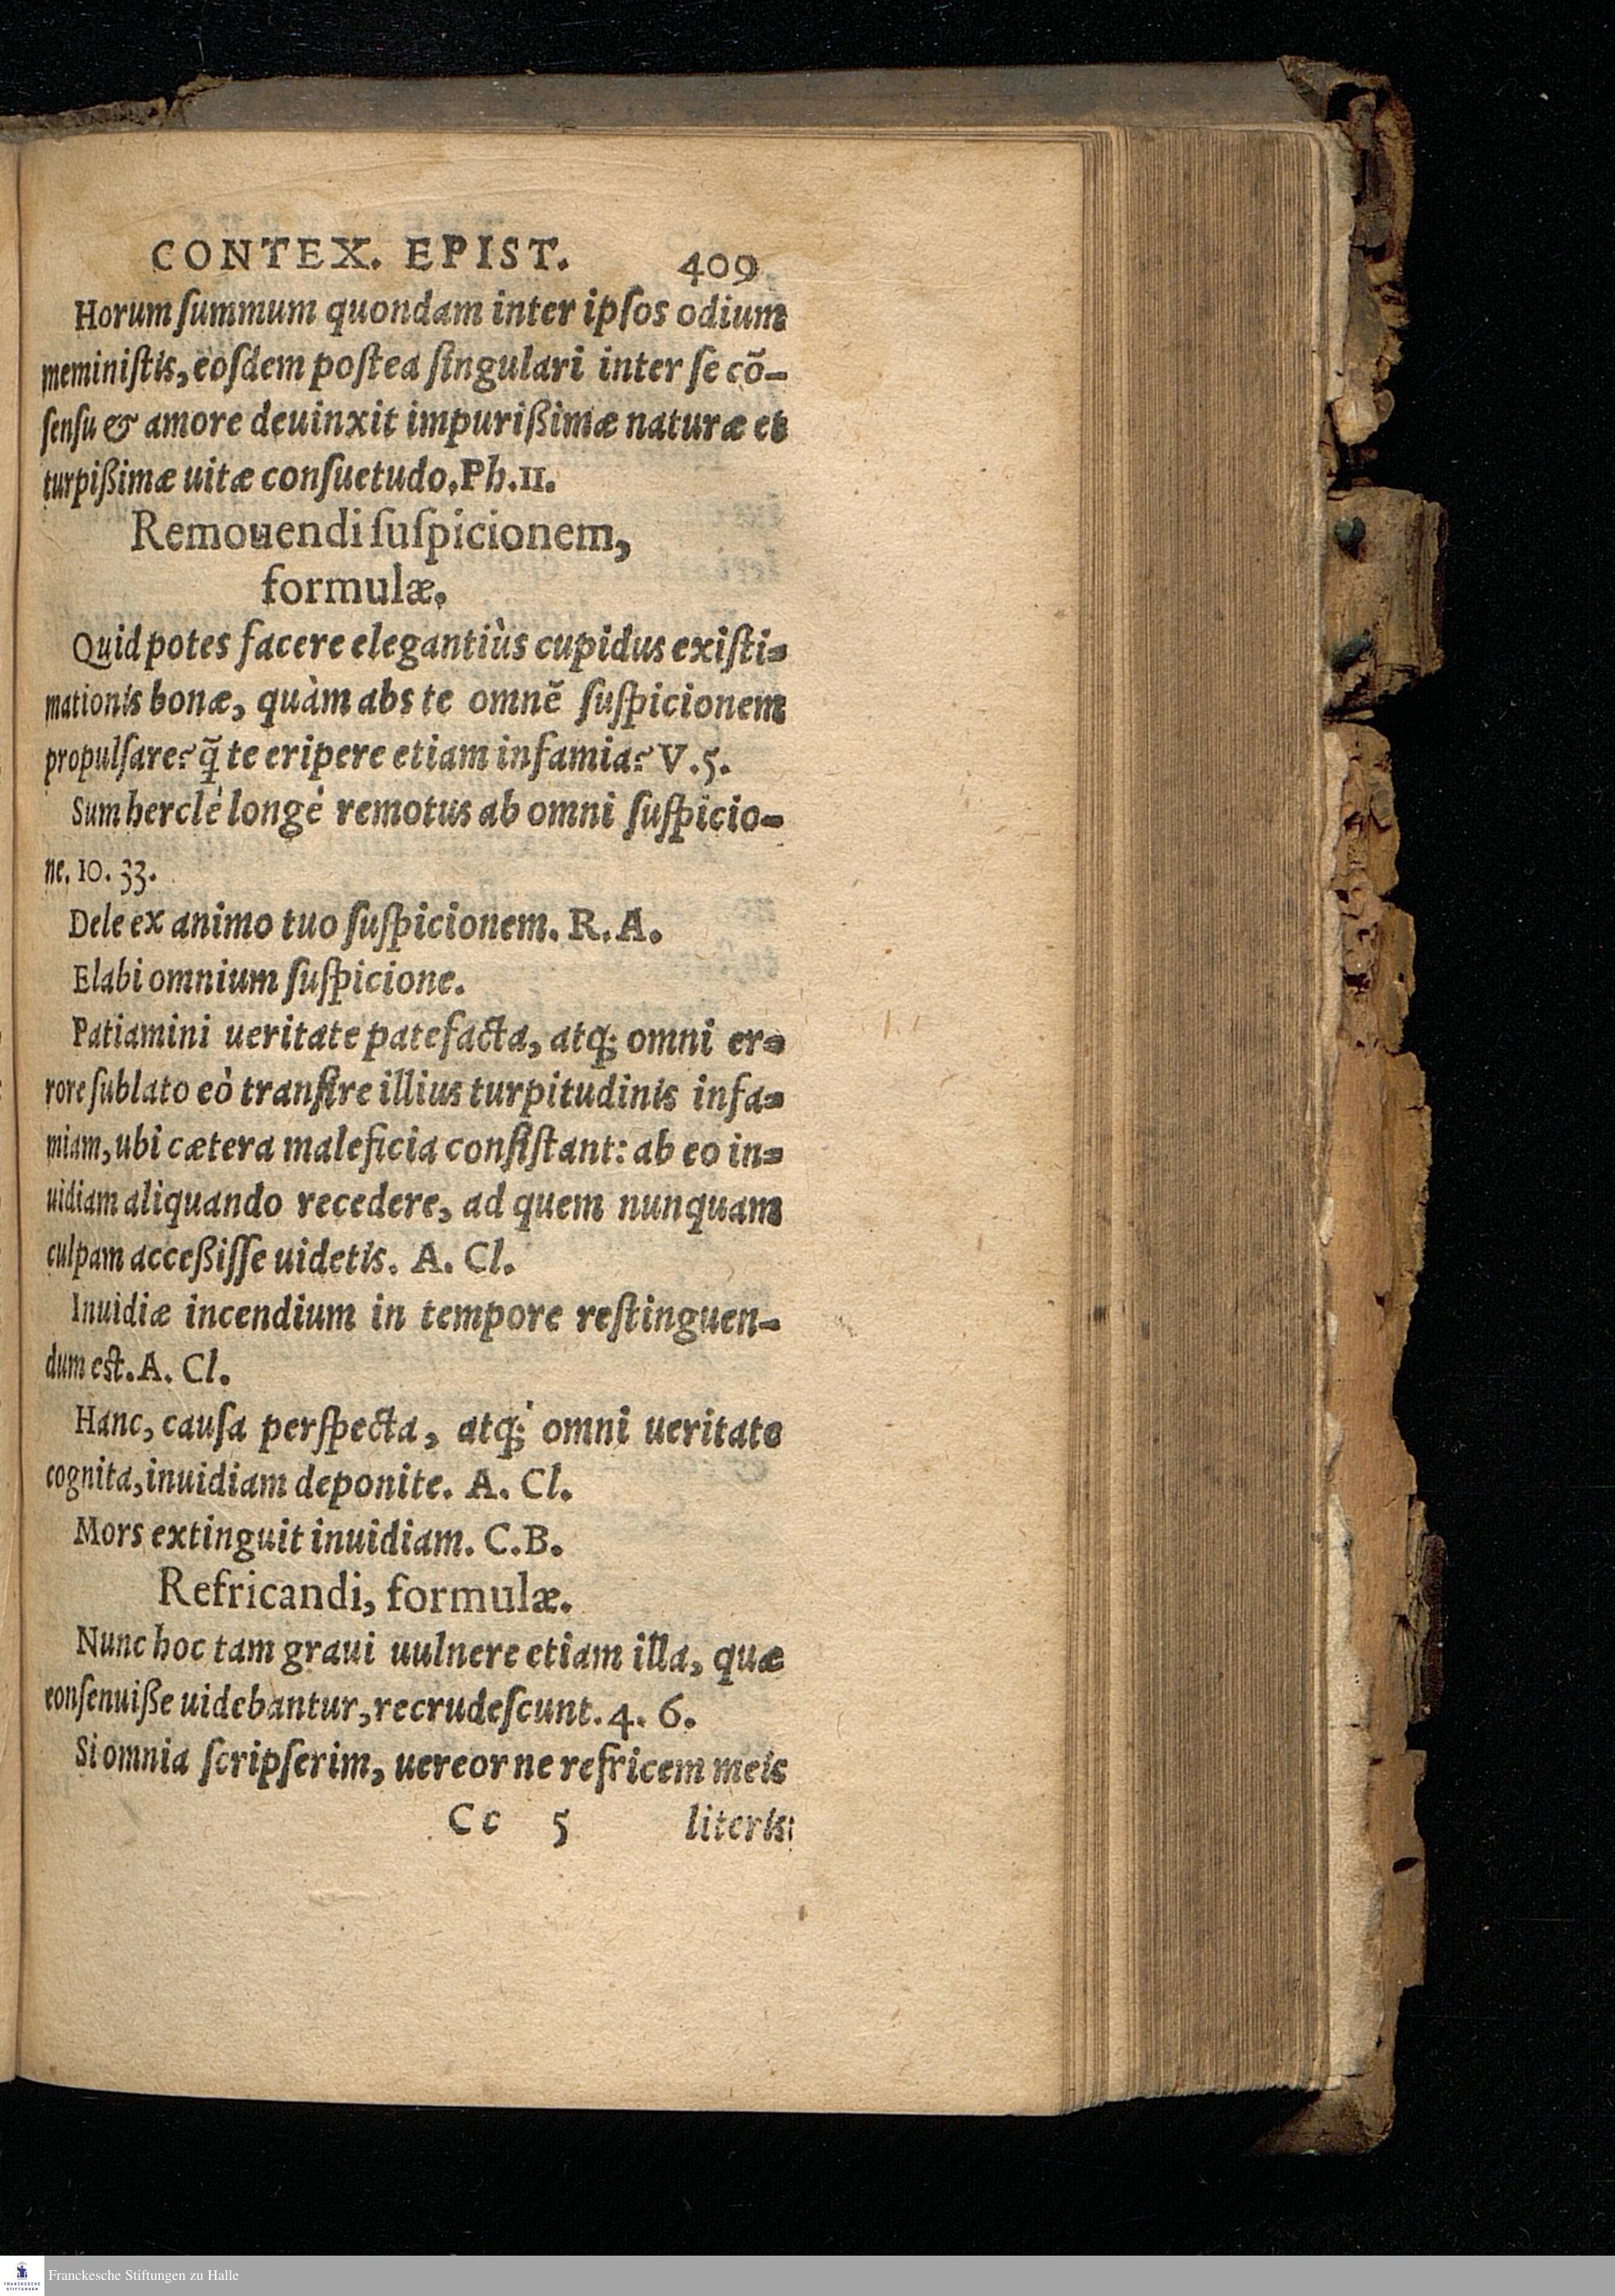 CONTEX. EPIST. 409
Horum ſummum quondam inter ipſos odium
meminiſtis, eoſdem poſtea ſingulari inter ſe cõ-
ſenſu & amore deuinxit impurißimæ naturæ et
turpißimæ uitæ conſuetudo. Ph. 11.
Remouendi ſuſpicionem,
formulæ.
Quid potes facere elegantiùs cupidus exiſti-
mationis bonæ, quàm abs te omnẽ ſuſpicionem
propulſare? q̃ te eripere etiam infamia? V. 5.
Sum herclé longé remotus ab omni ſuſpicio-
ne. 10. 33.
Dele ex animo tuo ſuſpicionem. R. A.
Elabi omnium ſuſpicione.
Patiamini ueritate patefacta, atq; omni er-
rore ſublato eò tranſire illius turpitudinis infa-
miam, ubi cætera maleficia conſiſtant: ab eo in-
uidiam aliquando recedere, ad quem nunquam
culpam acceßiſſe uidetis. A. Cl.
Inuidiæ incendium in tempore reſtinguen-
dum eſt. A. Cl.
Hanc, cauſa perſpecta, atq; omni ueritate
cognita, inuidiam deponite. A. Cl.
Mors extinguit inuidiam. C. B.
Refricandi, formulæ.
Nunc hoc tam graui uulnere etiam illa, quæ
conſenuiße uidebantur, recrudeſcunt. 4. 6.
Si omnia ſcripſerim, uereor ne refricem meis
Cc 5 literis:
Franckesche Stiftungen zu Halle
FRANCKESCHE
STIFTUNGEN